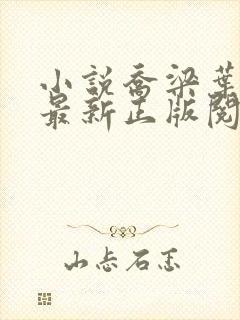 小説喬梁葉
最新正版閱
山忐石忎